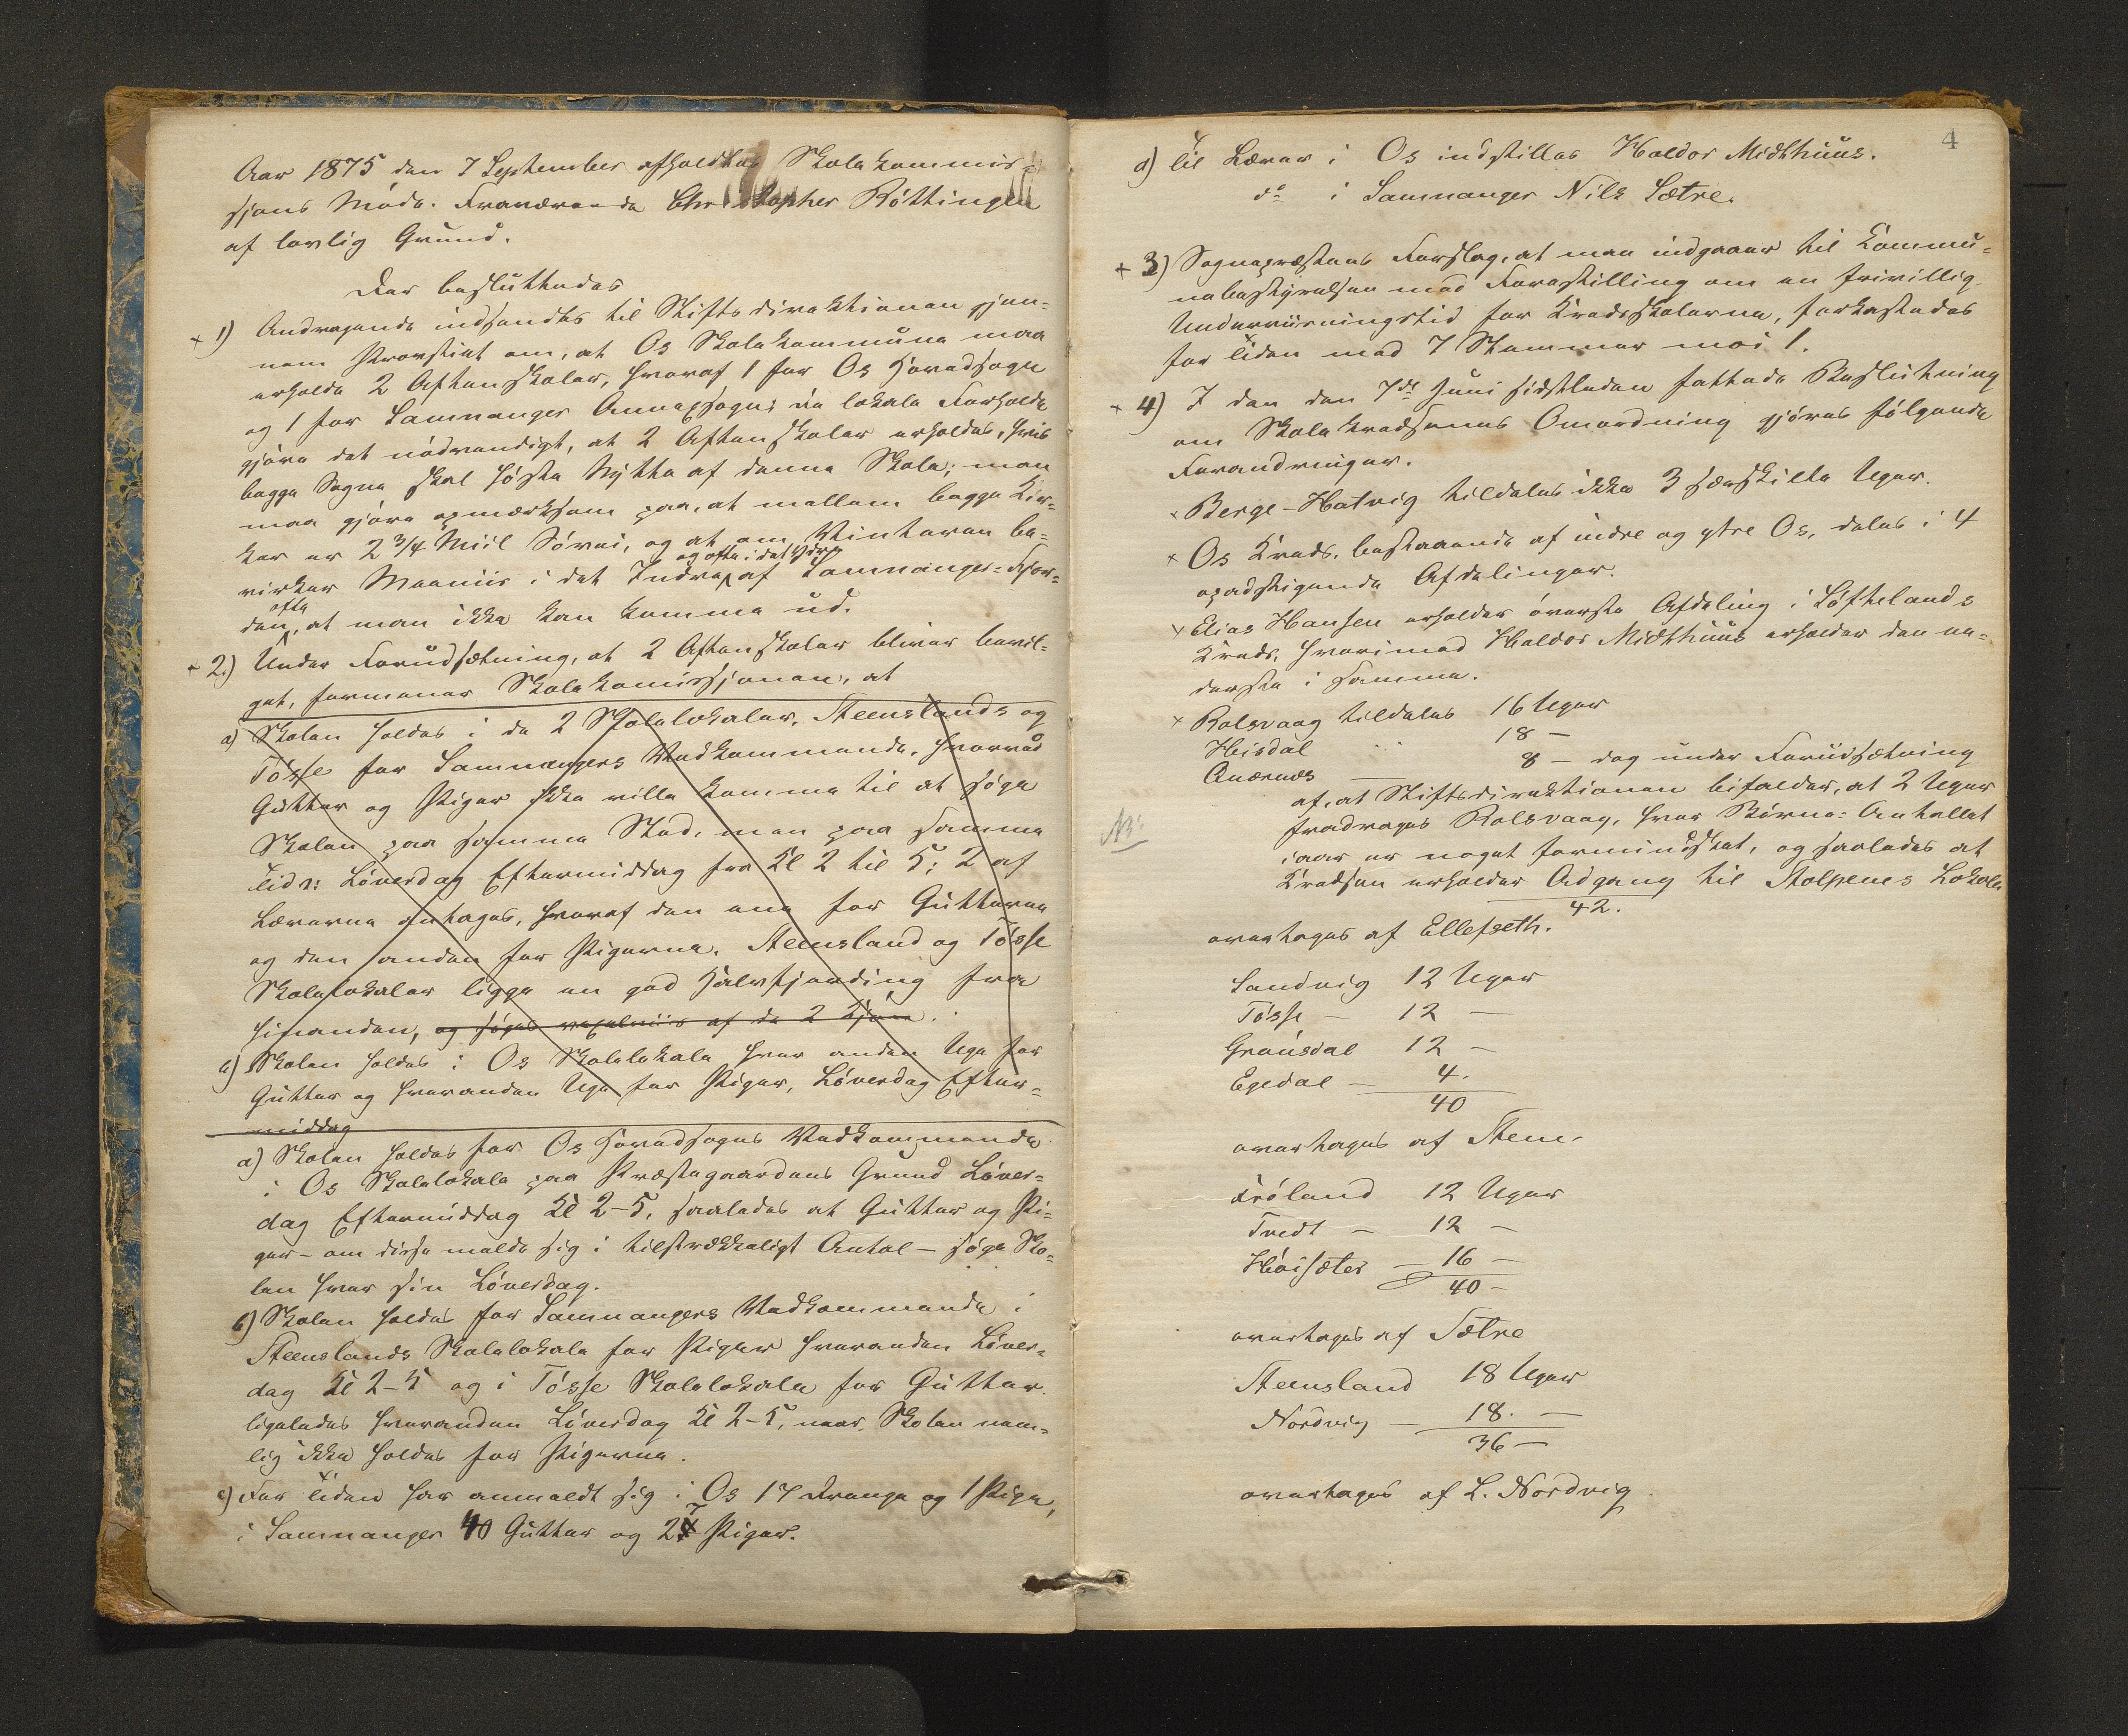 Aar 1875 den 7 September afholdtes Skolekommis-
sjons Møde. Fraværende Christopher Røttingen
af lovlig Grund.
Der besluttedes
+ 1) Andragende indsendes til Stiftsdirektionen gjen-
nem Provstiet om, at Os Skolekommune maa
erholde 2 Aftenskoler, hvoraf 1 for Os Hovedsogn
og 1 for Samnanger Annexsogn; da lokale Forholde
gjøre det nødvendigt, at 2 Aftenskoler erholdes, hvis
begge Sogne skal høste Nytte af denne Skole; man
maa gjøre opmærksom paa, at mellem begge Kir-
ker er 2 3/4 Miil Søvei, og at om Vinteren be-
virker Meeniis i det Indre og ofte i det Ydre af Samnanger-Fjor-
den ofte, at man ikke kan komme ud.
+ 2.) Under Forudsætning, at 2 Aftenskoler bliver bevil-
get, formener Skolekomissjonen, at
a) Skolen holdes i de 2 Skolelokaler, Steenslands og
Tøsse for Samnangers Vedkommende, hvorved
Gutter og Piger ikke ville komme til at søge
Skolen paa samme Sted, men paa samme
Tid: Løverdag Eftermiddag fra Kl 2 til 5; 2 af
Lærerne antages, hvoraf den ene for Gutterne
og den anden for Pigerne. Steensland og Tøsse
Skolelokaler ligge en god Halvfjerding fra
hinanden, og søges af de 2 Kjøn.
Skolen holdes i Os Skolelokale hver anden Uge for
Gutter og hveranden Uge for Piger, Løverdag Efter-
middag
a) Skolen holdes for Os Hovedsogns Vedkommende
i Os Skolelokale paa Præstegaardens Grund Løver-
dag Eftermiddag Kl 2-5, saaledes at Gutter og Pi-
ger - om disse melde sig i tilstrækkeligt Antal - søge Sko-
len hver sin Løverdag.
b) Skolen holdes for Samnangers Vedkommende i
Steenslands Skolelokale for Piger hveranden Løver-
dag Kl 2-5 og i Tøsse Skolelokale for Gutter
ligeledes hveranden Løverdag Kl 2-5, naar Skolen nem-
lig ikke holdes for Pigerne.
c) For Tiden har anmeldt sig i Os 17 Drenge og 1 Pige,
i Samnanger 40 Gutter og 27 Piger.
4
d) Til Lærer i Os indstilles Haldor Midthuus.
do i Samnanger Nils Sætre.
+ 3) Sognepræstens Forslag, at man indgaaer til Kommu-
nebestyrelsen med Forestilling om en frivillig
Underviisningstid for Kredsskolerne, forkastedes
for Tiden med 7 Stemmer mod 1.
+ 4) I den den 7de Juni sidstleden fattede Beslutning
om Skolekredsenes Omordning gjøres følgende
Forandringer.
x Berge-Hatvig tildeles ikke 3 særskilte Uger.
x Os Kreds, bestaaende af indre og ytre Os, deles i 4
opadstigende Afdelinger.
x Elias Hansen erholder øverste Afdeling i Løftelands
Kreds, hvorimod Haldor Midthuus erholder den ne-
derste i samme.
x Rolsvaag tildeles 16 Uger
Heisdal 18 -
Auernæs 8 - dog under Forudsætning
af, at Stiftsdirektionen bifalder, at 2 Uger
fradrages Rolsvaag, hvor Børne-Antallet
iaar er noget formindsket, og saaledes at
Kredsen erholder Adgang til Stolpenes Lokale
NB.
42.
overtages af Ellefseth.
Sandvig 12 Uger
Tøsse - 12 -
Grønsdal 12 -
Egedal - 4.
40
overtages af Steen.
Frøland 12 Uger
Tvedt - 12 -
Høisæter - 16 -
40 -
overtages af Sætre
Steensland 18 Uger
Nordvig - 18. -
36 -
overtages af L. Nordvig